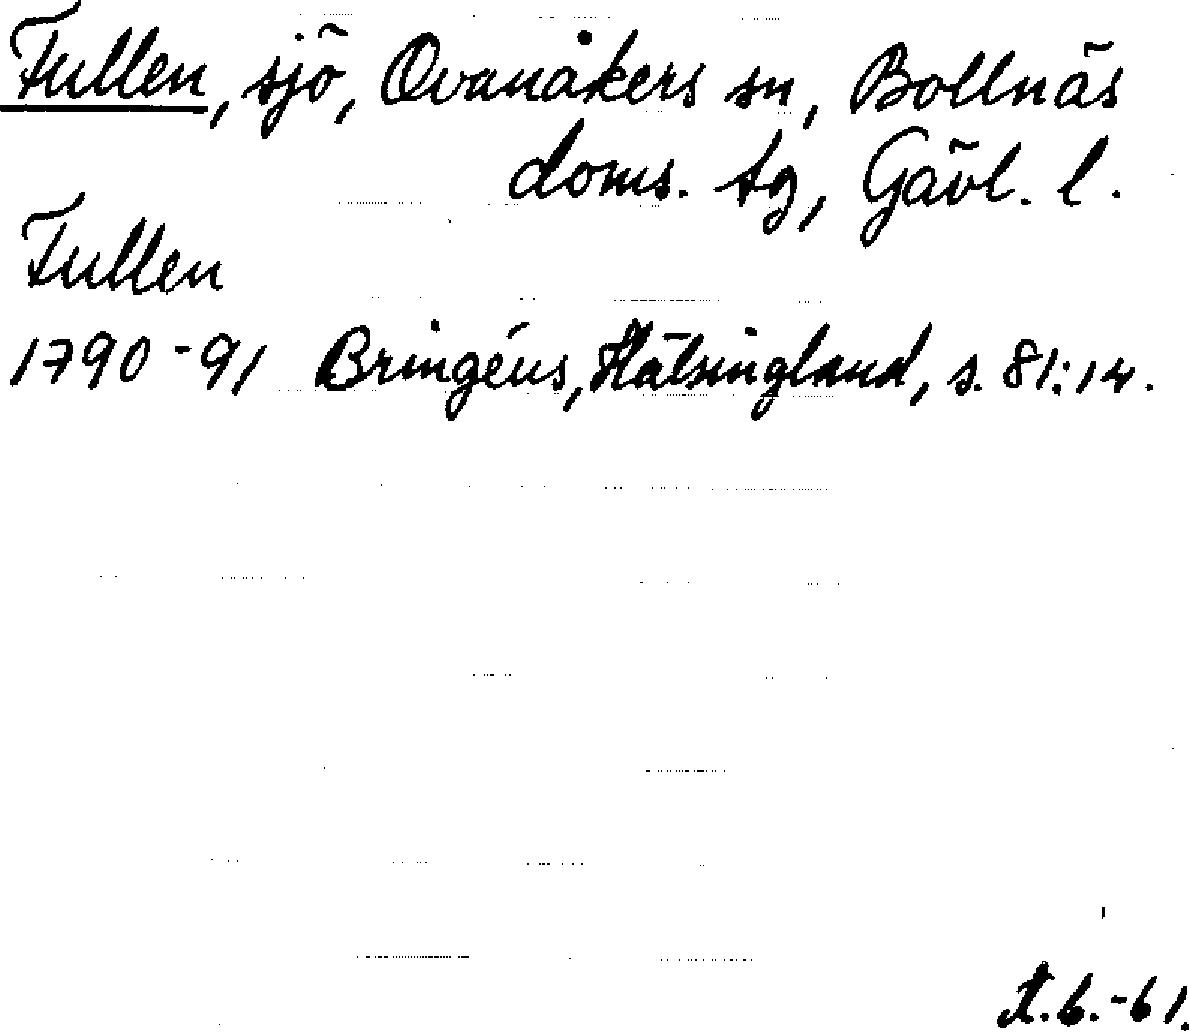 Fullen, sjö, Ovanåkers sn, Bollnäs
doms. tg, Gävl. l.
Fullen
1790-91 Bringéus, Hälsingland, s. 81:14.